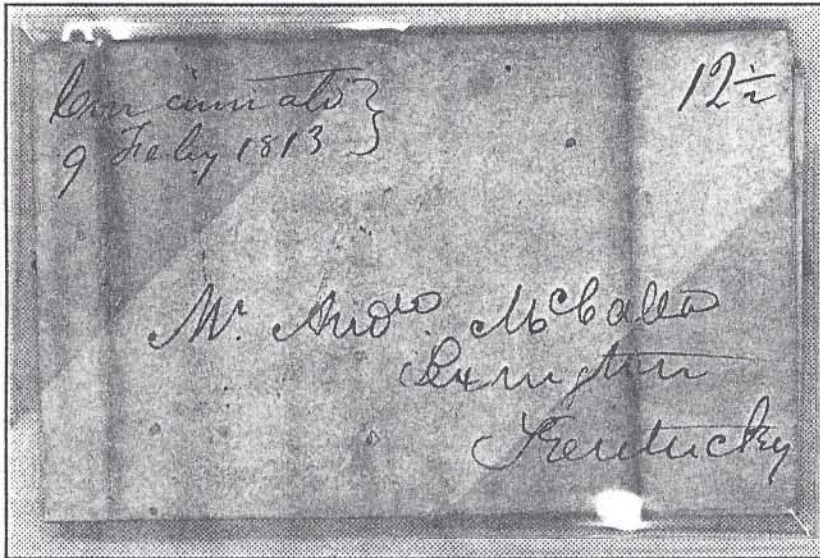 Cincinnati }
9 Feby 1813
12½
Mr. Andw. McCalla
Lexington
Kentucky